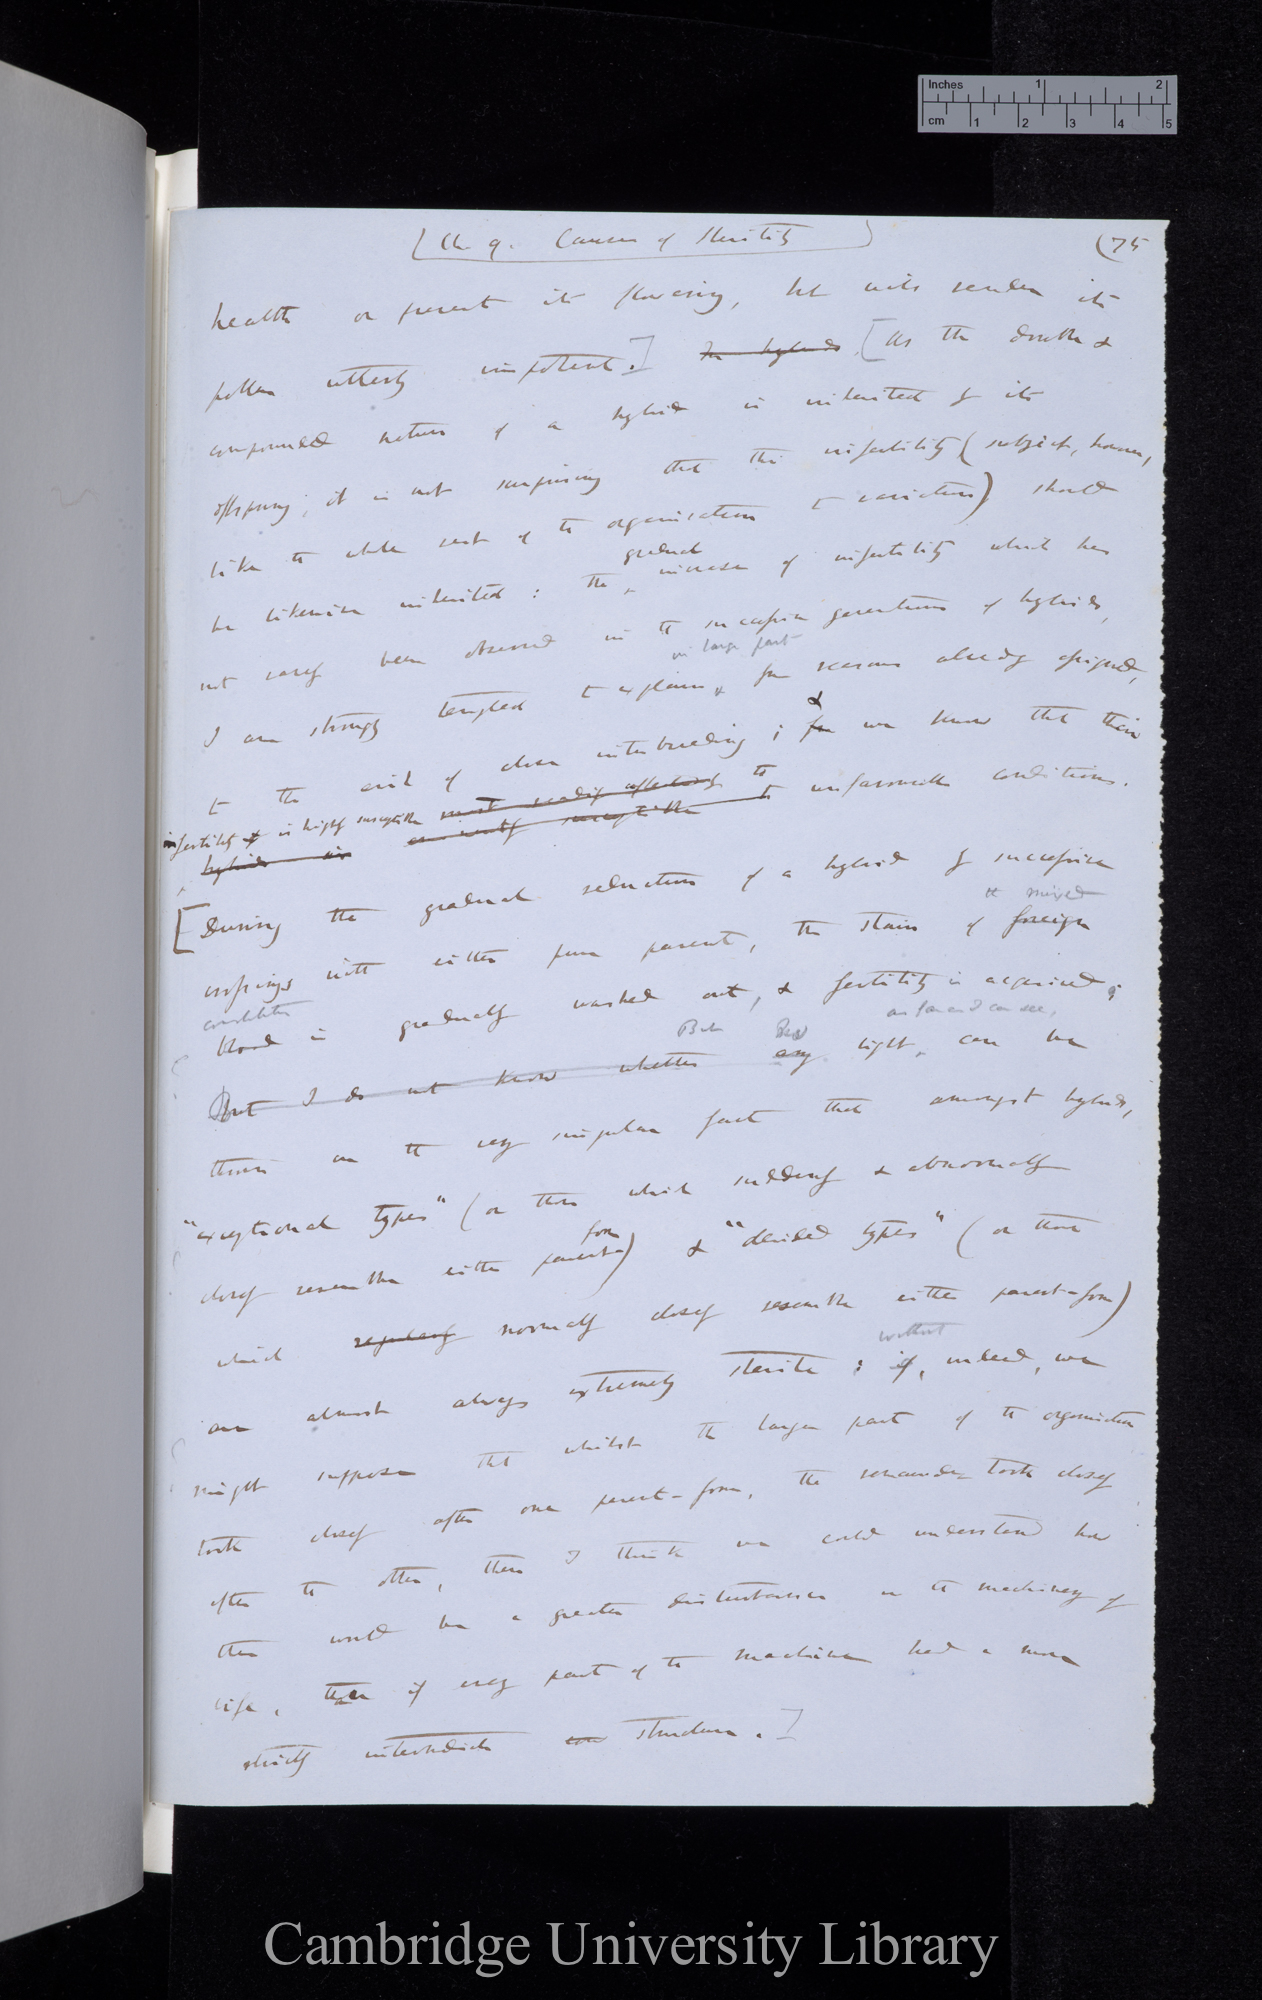 Inches 1 2
cm 1 2 3 4 5
(Ch 9. Causes of Sterility) (75
health or prevent its flowering, but will render its
pollen utterly impotent.] In hybrids [As the double &
compounded nature of a hybrid is inherited by its
offspring, it is not surprising that the infertility (subject, however,
like the whole rest of the organisation to variation) should
be likewise inherited: the
gradual
increase of infertility which has
not rarely been observed in the successive generations of hybrids,
I am strongly tempted to explain,
in large part
for reasons already assigned,
to the evil of close interbreeding; for
&
we know that their
infertility is highly susceptible most readily affected by to
hybrids are eminently susceptible to unfavourable conditions.
[During the gradual reduction of a hybrid by successive
crossings with either pure parent, the stain of foreign
the mixed
constitution
blood is gradually washed out, & fertility is acquired;
But
But I do not know whether any light,
as far as I can see,
can be
thrown on the very singular fact that amongst hybrids,
"exceptional types" (or those which suddenly & abnormally
closely resemble either parent-
form
) & "decided types" (or those
which regularly normally closely resemble either parent-form)
are almost always extremely sterile: if,
without
indeed, we
might suppose that whilst the larger part of the organisation
took closely after one parent-form, the remainder took closely
after the other, then I think we could understand how
there would be a greater disturbance in the machinery of
life, than if every part of the machine had a more
strictly intermediate structure.]
Cambridge University Library